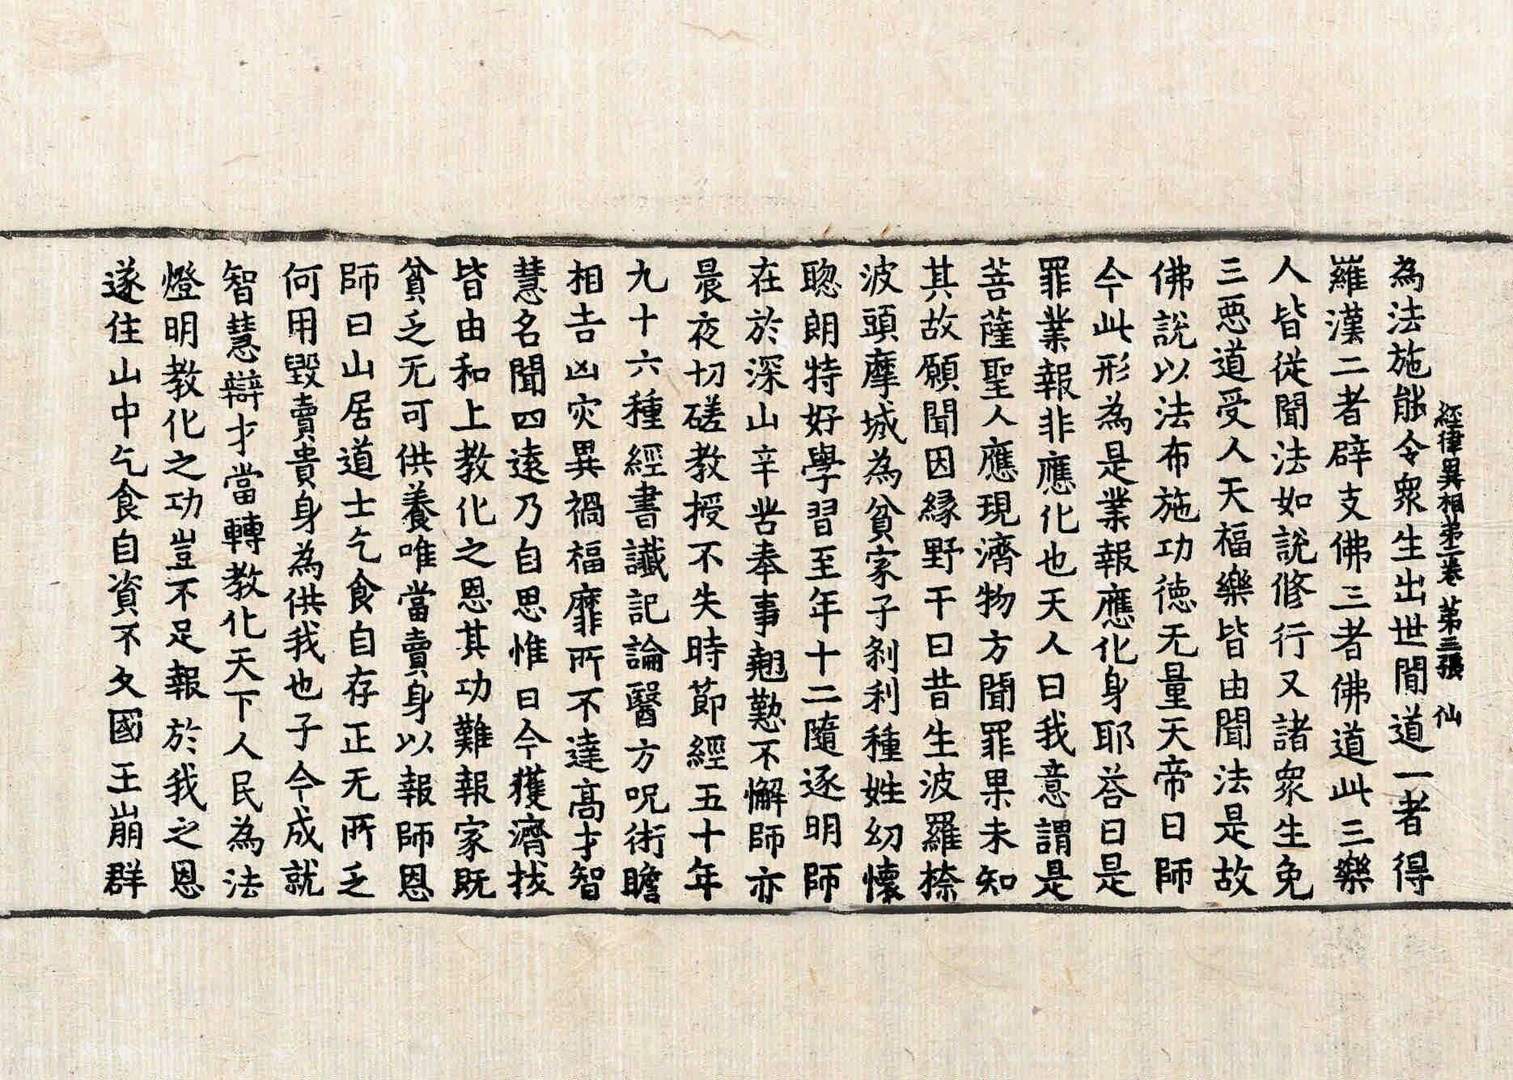 經律異相第二卷 第三張 仙
為法施能令衆生出世間道一者得
羅漢二者辟支佛三者佛道此三樂
人皆從聞法如說修行又諸衆生免
三惡道受人天福樂皆由聞法是故
佛說以法布施功德无量天帝日師
今此形為是業報應化身耶荅曰是
罪業報非應化也天人曰我意謂是
菩薩聖人應現濟物方聞罪果未知
其故願聞因緣野干曰昔生波羅㮈
波頭摩城為貧家子刹利種姓幼懷
聰朗特好學習至年十二隨逐明師
在於深山辛苦奉事翹懃不懈師亦
晨夜切磋教授不失時節經五十年
九十六種經書讖記論醫方呪術瞻
相吉凶灾異禍福靡所不達高才智
慧名聞四遠乃自思惟曰今獲濟拔
皆由和上教化之恩其功難報家既
貧乏无可供養唯當賣身以報師恩
師曰山居道士乞食自存正无所乏
何用毀賣貴身為供我也子今成就
智慧辯才當轉教化天下人民為法
燈明教化之功豈不足報於我之恩
遂住山中乞食自資不久國王崩群